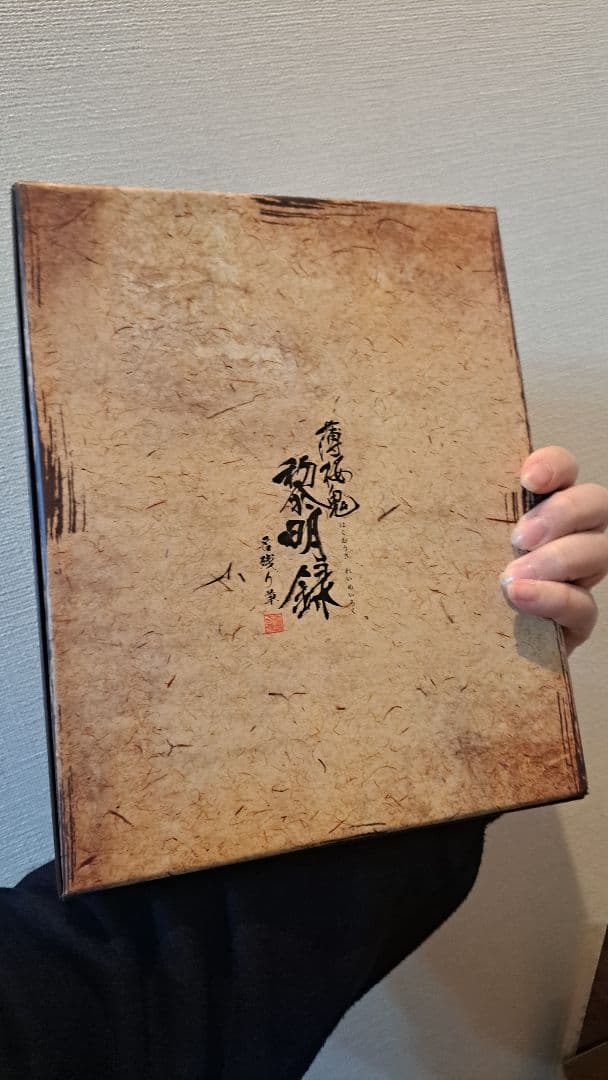 薄桜鬼
黎明録
はくおうき れいめいろく
名残り草